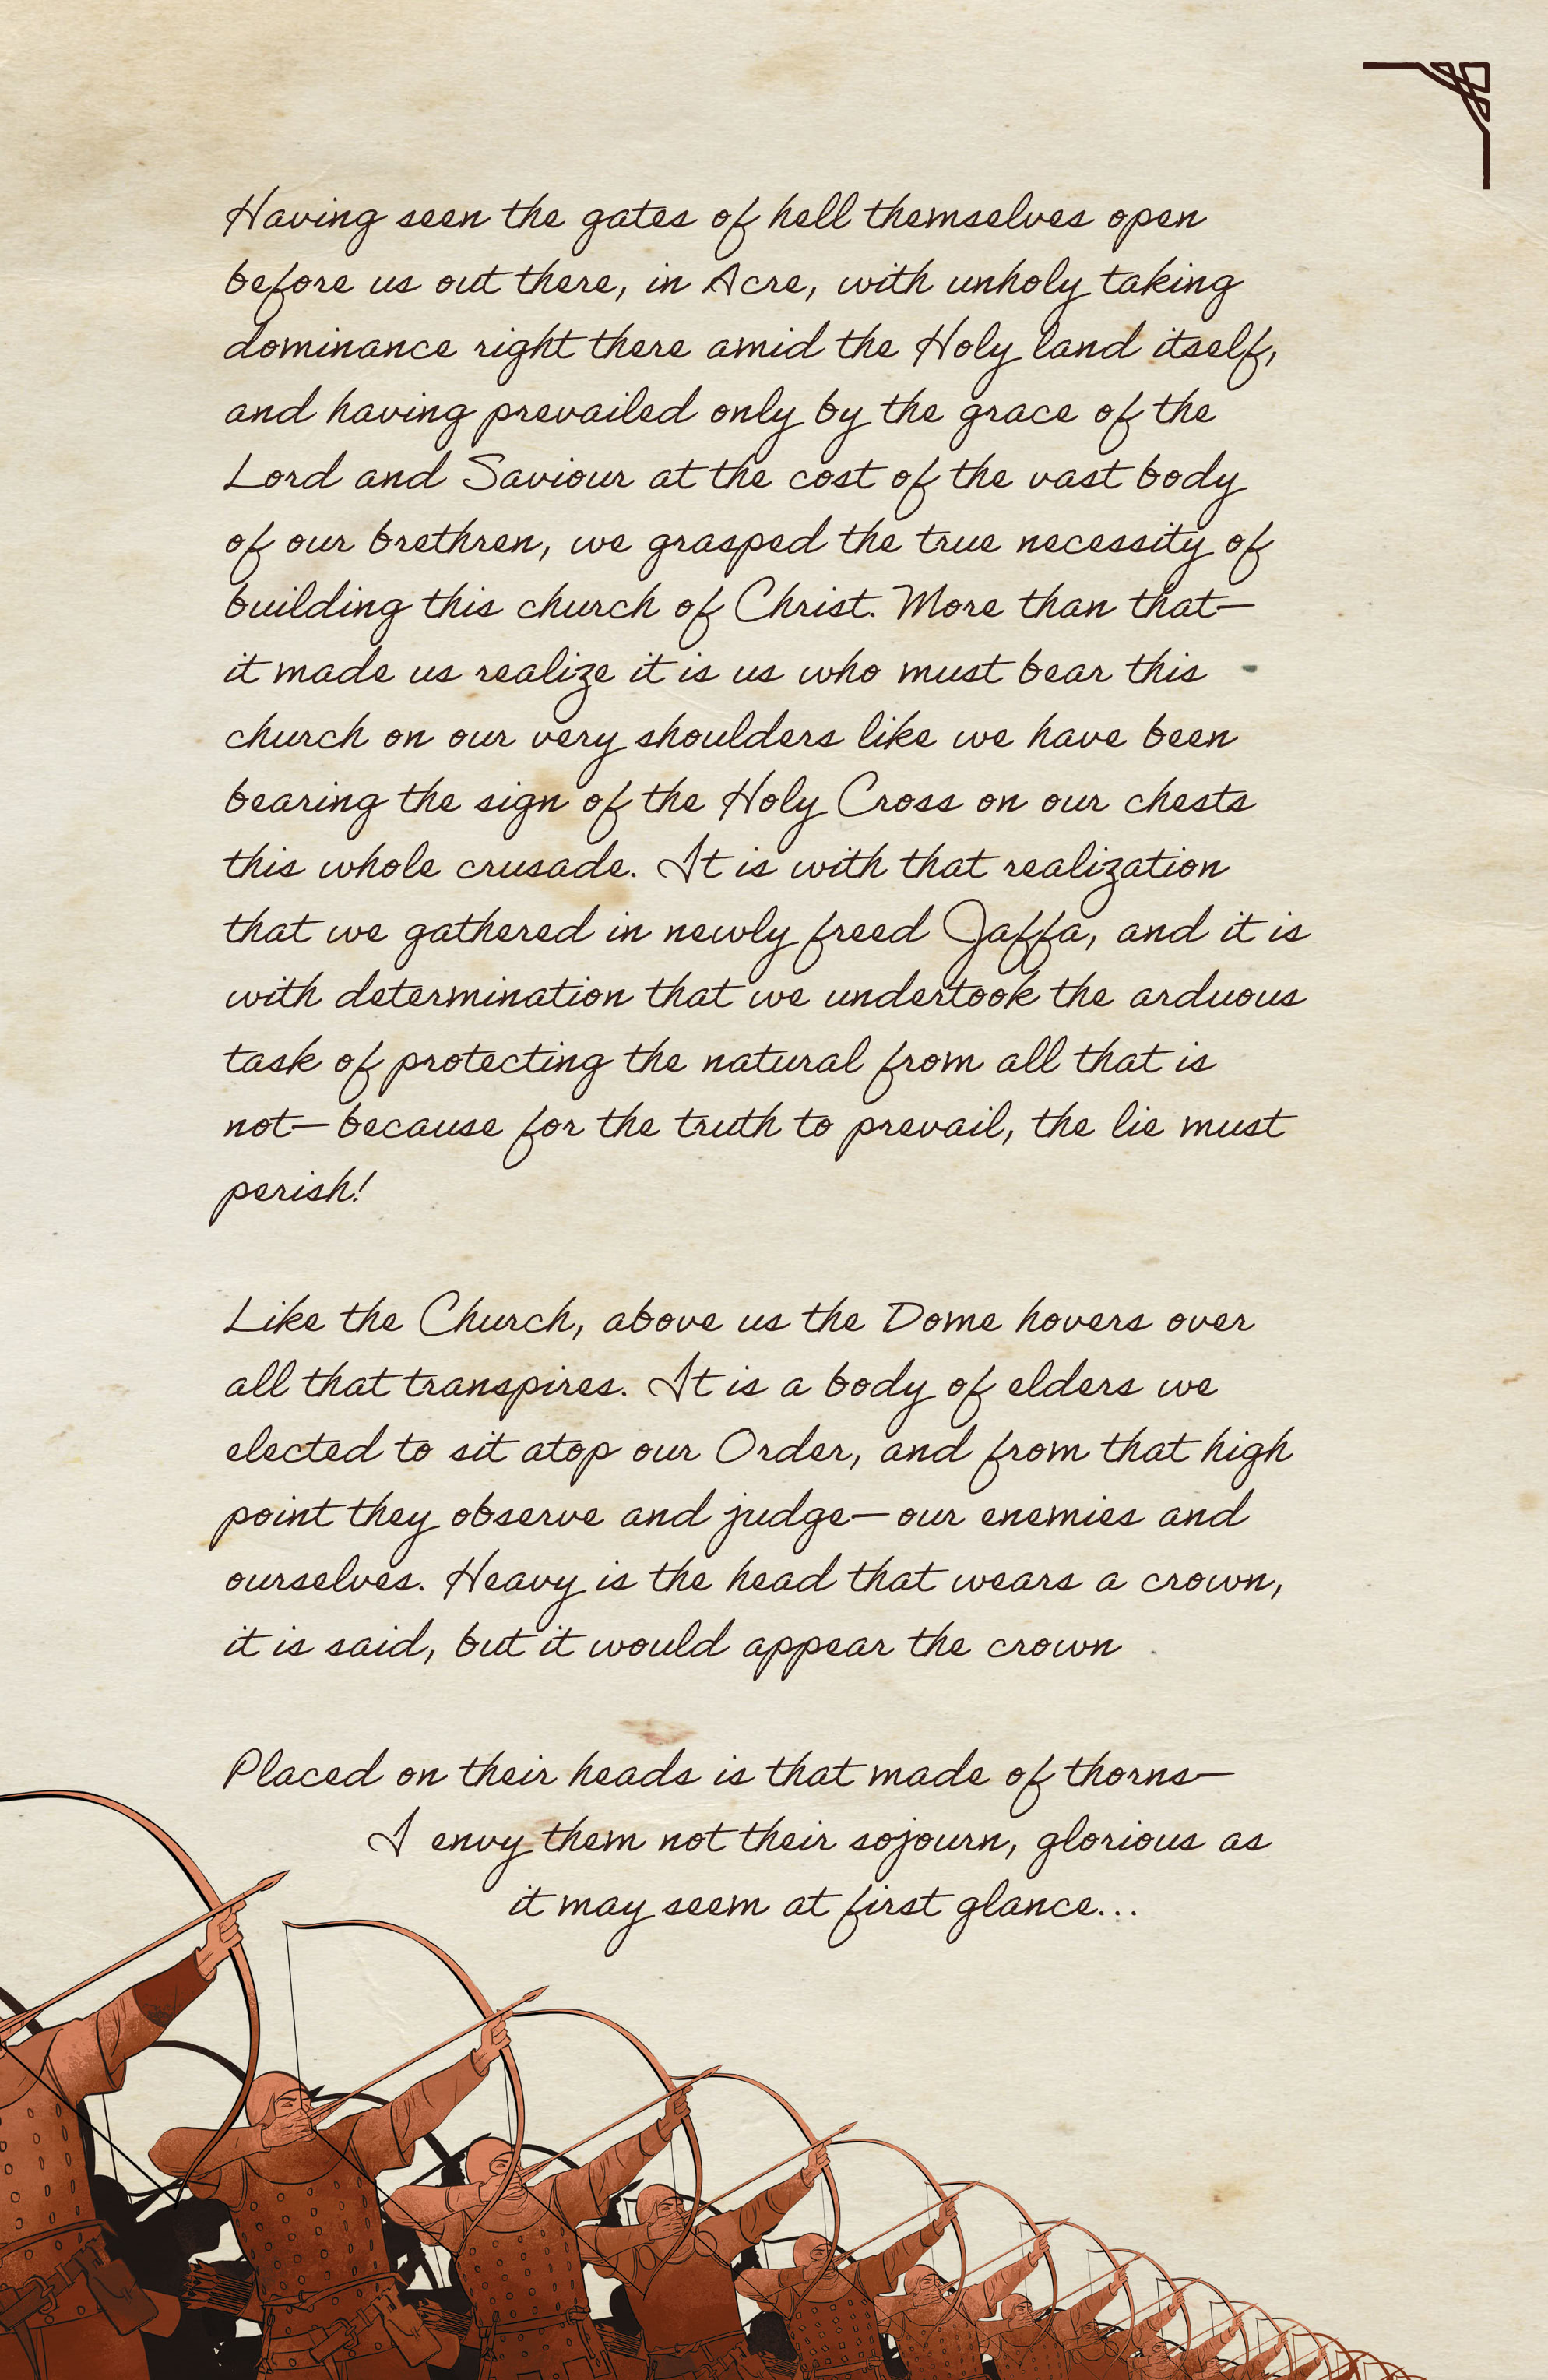 Having seen the gates of hell themselves open
before us out there, in Acre, with unholy taking
dominance right there amid the Holy land itself,
and having prevailed only by the grace of the
Lord and Saviour at the cost of the vast body
of our brethren, we grasped the true necessity of
building this church of Christ. More than that—
it made us realize it is us who must bear this
church on our very shoulders like we have been
bearing the sign of the Holy Cross on our chests
this whole crusade. It is with that realization
that we gathered in newly freed Jaffa, and it is
with determination that we undertook the arduous
task of protecting the natural from all that is
not—because for the truth to prevail, the lie must
perish!
Like the Church, above us the Dome hovers over
all that transpires. It is a body of elders we
elected to sit atop our Order, and from that high
point they observe and judge—our enemies and
ourselves. Heavy is the head that wears a crown,
it is said, but it would appear the crown
Placed on their heads is that made of thorns—
I envy them not their sojourn, glorious as
it may seem at first glance...